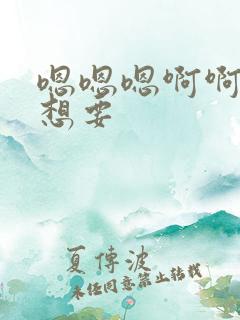 嗯嗯嗯啊啊
想要
夏傅波
未经同意禁止转载